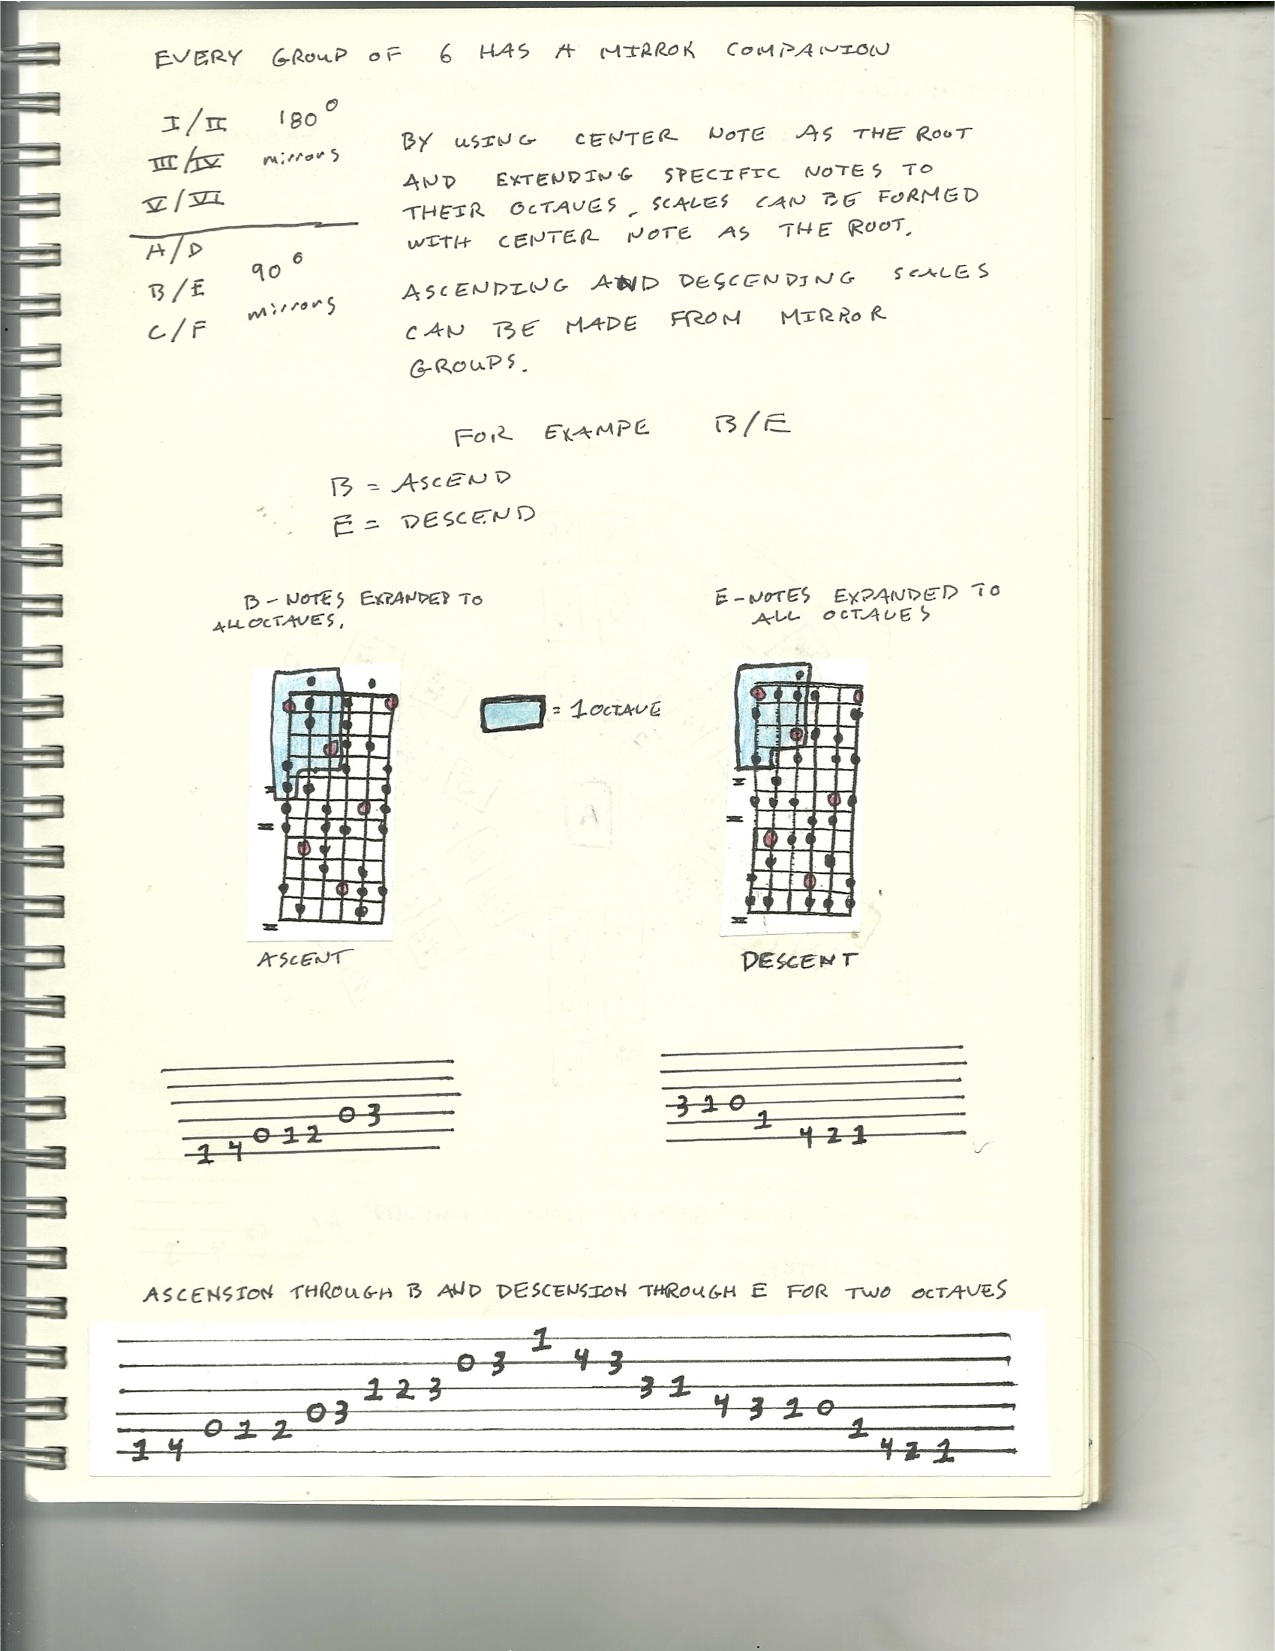 EVERY GROUP OF 6 HAS A MIRROR COMPANION
I/II 180°
III/IV mirrors
V/VI
A/D
B/E 90°
C/F mirrors
BY USING CENTER NOTE AS THE ROOT
AND EXTENDING SPECIFIC NOTES TO
THEIR OCTAVES, SCALES CAN BE FORMED
WITH CENTER NOTE AS THE ROOT.
ASCENDING AND DESCENDING SCALES
CAN BE MADE FROM MIRROR
GROUPS.
FOR EXAMPE B/E
B = ASCEND
E = DESCEND
B-NOTES EXPANDED TO
ALL OCTAVES.
E-NOTES EXPANDED TO
ALL OCTAVES
= 1 OCTAVE
ASCENT
DESCENT
1 4 0 1 2 0 3
3 1 0 1 4 2 1
ASCENSION THROUGH B AND DESCENSION THROUGH E FOR TWO OCTAVES
1 4 0 1 2 0 3 1 2 3 0 3 1 4 3 3 1 4 3 1 0 1 4 2 1